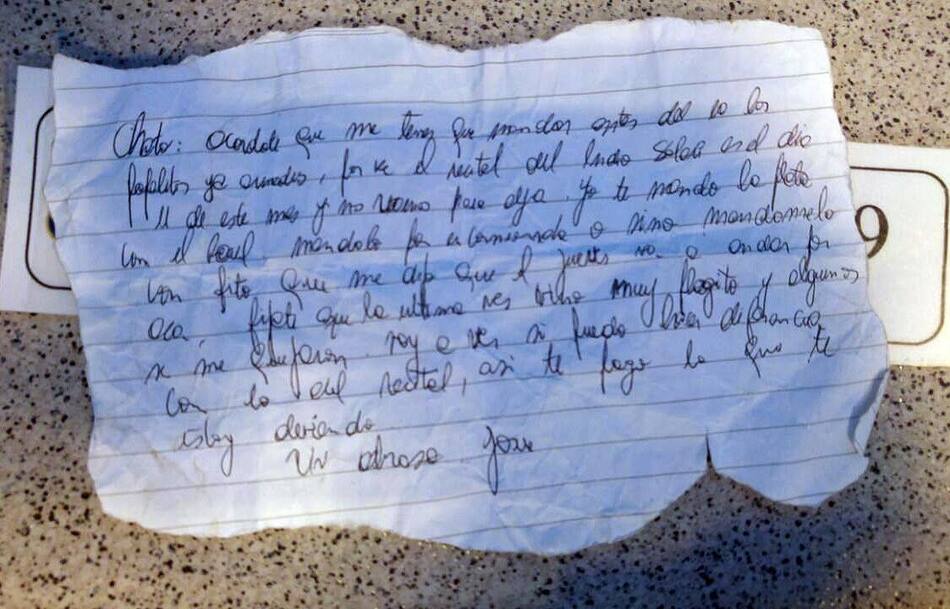 Choto: acordate que me tenes que mandar antes del 10 los
papelitos ya armados, por ke el recital del Indo Solari es el dia
11 de este mes y no vamo para alla. Yo te mando la plata
con el Raul. mandalo por encomienda o sino mandamelo
con fito que me dijo que el jueves va a andar por
aca, fijate que la ultima ves vino muy flogito y algunos
se me quejaron. voy a ver si puedo hacer diferencia
con lo del recital, asi te pago lo que te
estoy deviendo.
Un abraso Jose
9